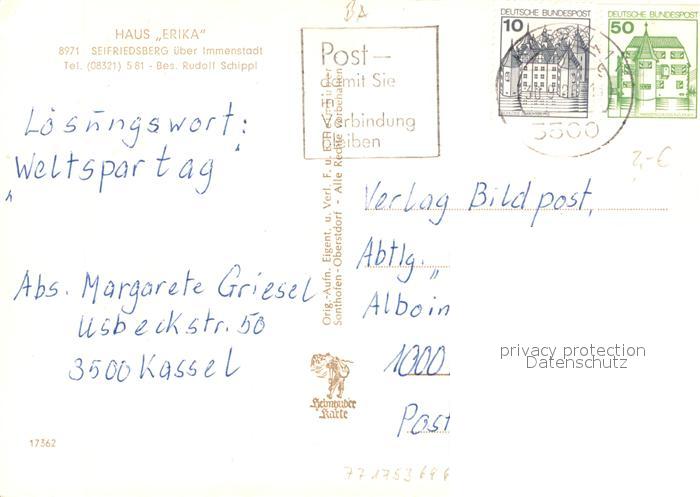 HAUS „ERIKA"
8971 SEIFRIEDSBERG über Immenstadt
Tel. (08321) 581 - Bes. Rudolf Schippl
BA
Post—
damit Sie
in
Verbindung
bleiben
10
DEUTSCHE BUNDESPOST
50
DEUTSCHE BUNDESPOST
3500
2,-€
Lösungswort:
„Weltspartag"
Abs. Margarete Griesel
Usbeckstr. 50
3500 Kassel
17362
Orig.-Aufn. Eigent. u. Verl. F. u.
Sonthofen-Oberstdorf - Alle Rechte vorbehalten
Heimhuber
Karte
Verlag Bildpost,
Abtlg. „
Alboin
1000
Post
privacy protection
Datenschutz